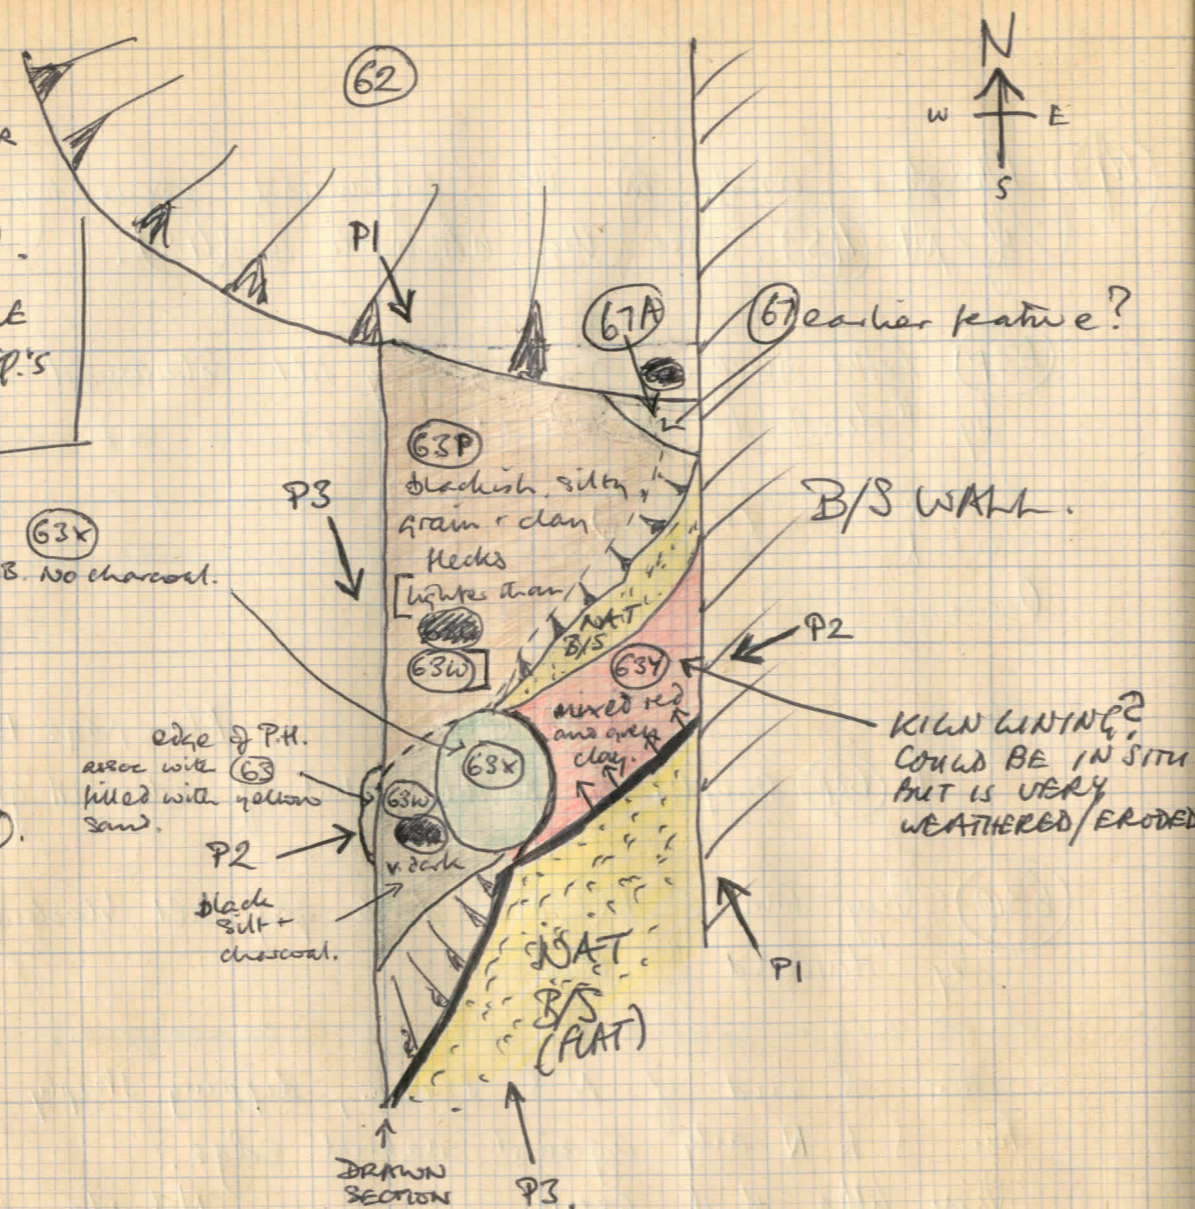 N
W E
S
62
R
P1
67A
67 earlier feature?
E
P.'S
63P
blackish. silty
grain + clay
flecks
[lighter than
63W]
P3
63X
B. No charcoal.
B/S WALL.
NAT
B/S
P2
63Y
mixed red
and grey
clay.
KILN LINING?
COULD BE IN SITU
BUT IS VERY
WEATHERED/ERODED
edge of P.H.
assoc with 63
filled with yellow
sand.
63X
63W
v. dark
P2
black
silt +
charcoal.
NAT
B/S
(FLAT)
P1
DRAWN
SECTION
P3.